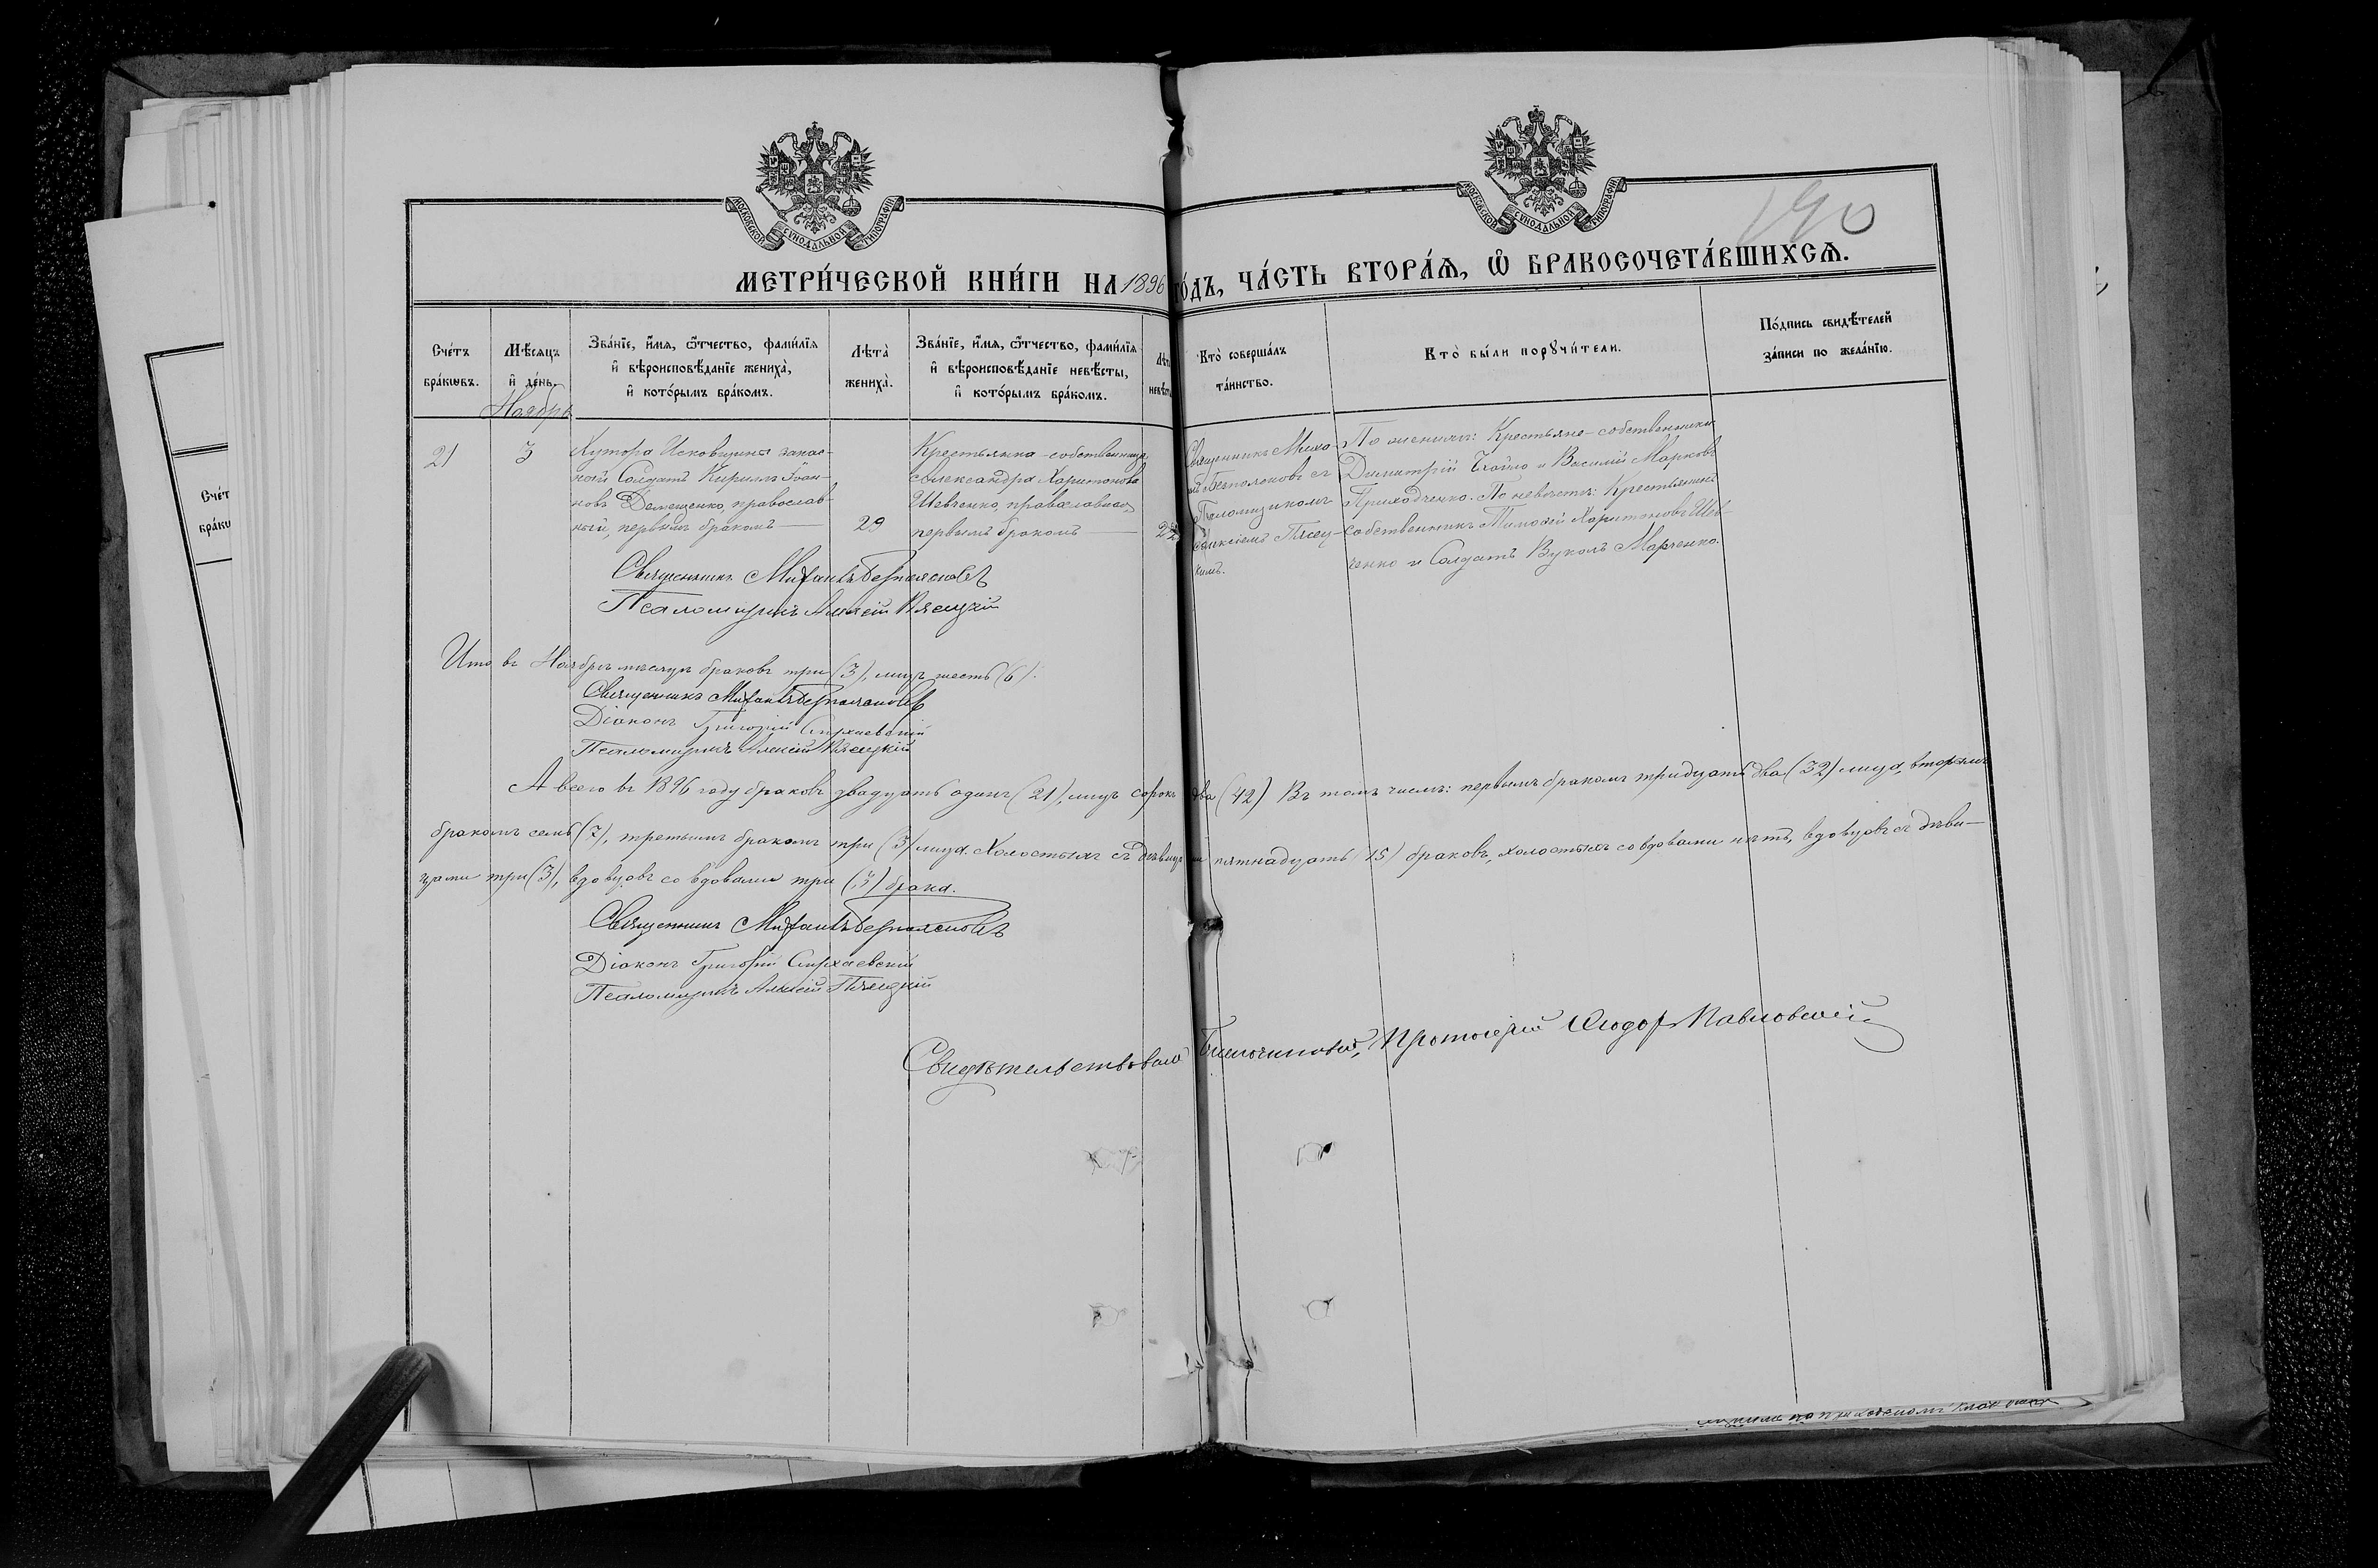 МОСКОВСКОЙ СѴНОДАЛЬНОЙ ТИПОГРАФІИ
МОСКОВСКОЙ СѴНОДАЛЬНОЙ ТИПОГРАФІИ
190
МЕТРИ́ЧЕСКОЙ КНИ́ГИ НА 1896 ГО́ДЪ, ЧА́СТЬ ВТОРА́Ѧ, Ѽ БРАКОСОЧЕТА́ВШИХСѦ.
Сче́тъ
бра́кѡвъ.
Мѣ́сяцъ
и҆ де́нь.
Ноябрь
Зва́нїе, и҆́мѧ, ѻ҆́тчество, фами́лїѧ
и҆ вѣроисповѣ́данїе жениха̀,
и҆ кото́рымъ бра́комъ.
Лѣта̀
жениха̀.
Зва́нїе, и҆́мѧ, ѻ҆́тчество, фами́лїѧ
и҆ вѣроисповѣ́данїе невѣ́сты,
и҆ кото́рымъ бра́комъ.
Лѣт
невѣст
Кто̀ соверша́лъ
та́инство.
Кто̀ бы́ли порꙋчи́тели.
По́дпись свидѣ́телей
за́писи по жела́нїю.
21
3
Хутора Исковщины запас-
ной Солдатъ Кириллъ Іоан-
новъ Демещенко, православ-
ный, первымъ бракомъ
29
Крестьянка-собственница
Александра Харитонова
Шевченко, православная,
первымъ бракомъ
22
Священникъ Миха-
илъ Безпалоковъ съ
Псаломщикомъ
Алексіемъ Пясец-
кимъ.
По женихѣ: Крестьяне-собственники
Димитрій Чайло и Василій Марковъ
Приходченко. По невѣстѣ: Крестьянинъ
собственникъ Тимофей Харитоновъ Шев-
ченко и Солдатъ Вуколъ Марченко.
Священникъ Михаилъ
Псаломщикъ Алексій Пясецкій
Итого въ Ноябрѣ мѣсяцѣ браковъ три (3), лицъ шесть (6).
Священникъ Михаилъ
Діаконъ Григорій
Псаломщикъ Алексій Пясецкій
А всего въ 1896 году браковъ двадцать одинъ (21), лицъ сорокъ два (42) Въ томъ числѣ: первымъ бракомъ тридцать два (32) лица, вторымъ
бракомъ семь (7), третьимъ бракомъ три (3) лица. Холостыхъ съ дѣвицами пятнадцать (15) браковъ, холостыхъ со вдовами нѣтъ, вдовцовъ съ дѣви-
цами три (3), вдовцовъ со вдовами три (3) брака.
Священникъ Михаилъ
Діаконъ Григорій
Псаломщикъ Алексій Пясецкій
Свидѣтельствовалъ Благочинный, Протоіерей Павловскій
Сче́т
бра́кѡ